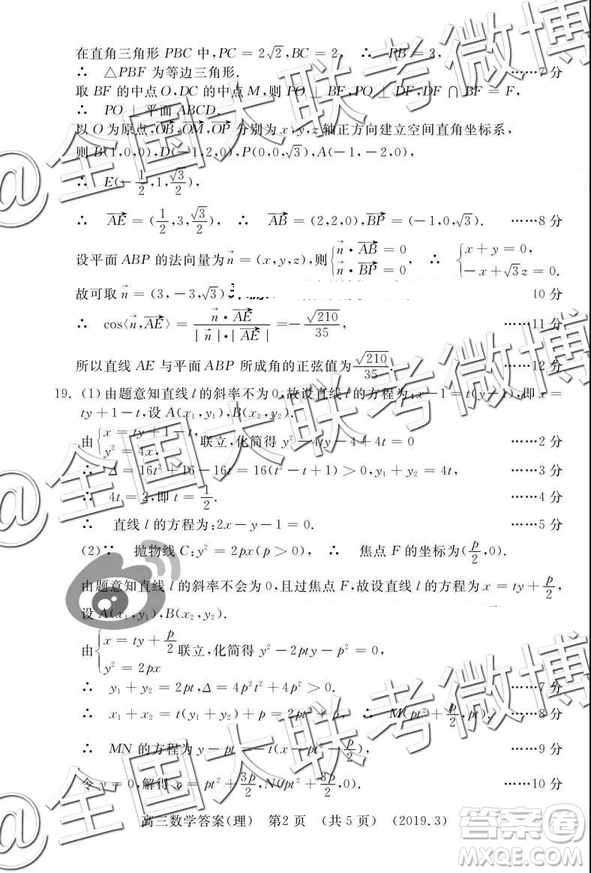 在直角三角形 PBC 中,PC=2√2,BC=2, ∴ PB=3,
∴ △PBF 为等边三角形. ……7分
取 BF 的中点 O,DC 的中点 M,则 PO⊥BF,PO⊥DF,DF∩BF=F,
∴ PO⊥平面 ABCD.
以 O 为原点,OB,OM,OP 分别为 x,y,z 轴正方向建立空间直角坐标系,
则 B(1,0,0),D(-1,2,0),P(0,0,√3),A(-1,-2,0),
∴ E(-1/2,1,√3/2),
∴ AE=(1/2,3,√3/2), ∴ AB=(2,2,0),BP=(-1,0,√3). ……8分
设平面 ABP 的法向量为 n=(x,y,z),则{n·AB=0 n·BP=0 ∴ {x+y=0, -x+√3z=0.
故可取 n=(3,-3,√3) 10分
∴ cos⟨n,AE⟩=n·AE/|n||AE|=-√210/35, ……11分
所以直线 AE 与平面 ABP 所成角的正弦值为 √210/35. ……12分
19. (1)由题意知直线 l 的斜率不为 0,故设直线 l 的方程为 x-1=t(y-1),即 x=
ty+1-t,设 A(x₁,y₁),B(x₂,y₂).
由{x=ty+1-t, y²=4x, 联立,化简得 y²-4ty-4+4t=0 ……2分
∴ Δ=16t²+16-16t=16(t²-t+1)>0,y₁+y₂=4t, ……3分
∴ 4t=2,即 t=1/2. ……4分
∴ 直线 l 的方程为:2x-y-1=0. ……5分
(2)∵ 抛物线 C:y²=2px(p>0), ∴ 焦点 F 的坐标为(p/2,0).
由题意知直线 l 的斜率不会为 0,且过焦点 F,故设直线 l 的方程为 x=ty+p/2,
设 A(x₁,y₁),B(x₂,y₂).
由{x=ty+p/2 y²=2px 联立,化简得 y²-2pty-p²=0,
∴ y₁+y₂=2pt,Δ=4p²t²+4p²>0. ……7分
∴ x₁+x₂=t(y₁+y₂)+p=2pt²+p. ∴ M(pt²+p/2,pt). ……8分
∴ MN 的方程为 y-pt=-t(x-pt²-p/2), ……9分
令 y=0,解得 x=pt²+3p/2,N(pt²+3p/2,0). ……10分
高三数学答案(理) 第2页 (共5页) (2019.3)
@全国大联考微博
@全国大联考微博
@全国大联考微博
答案圈
MXQE.COM